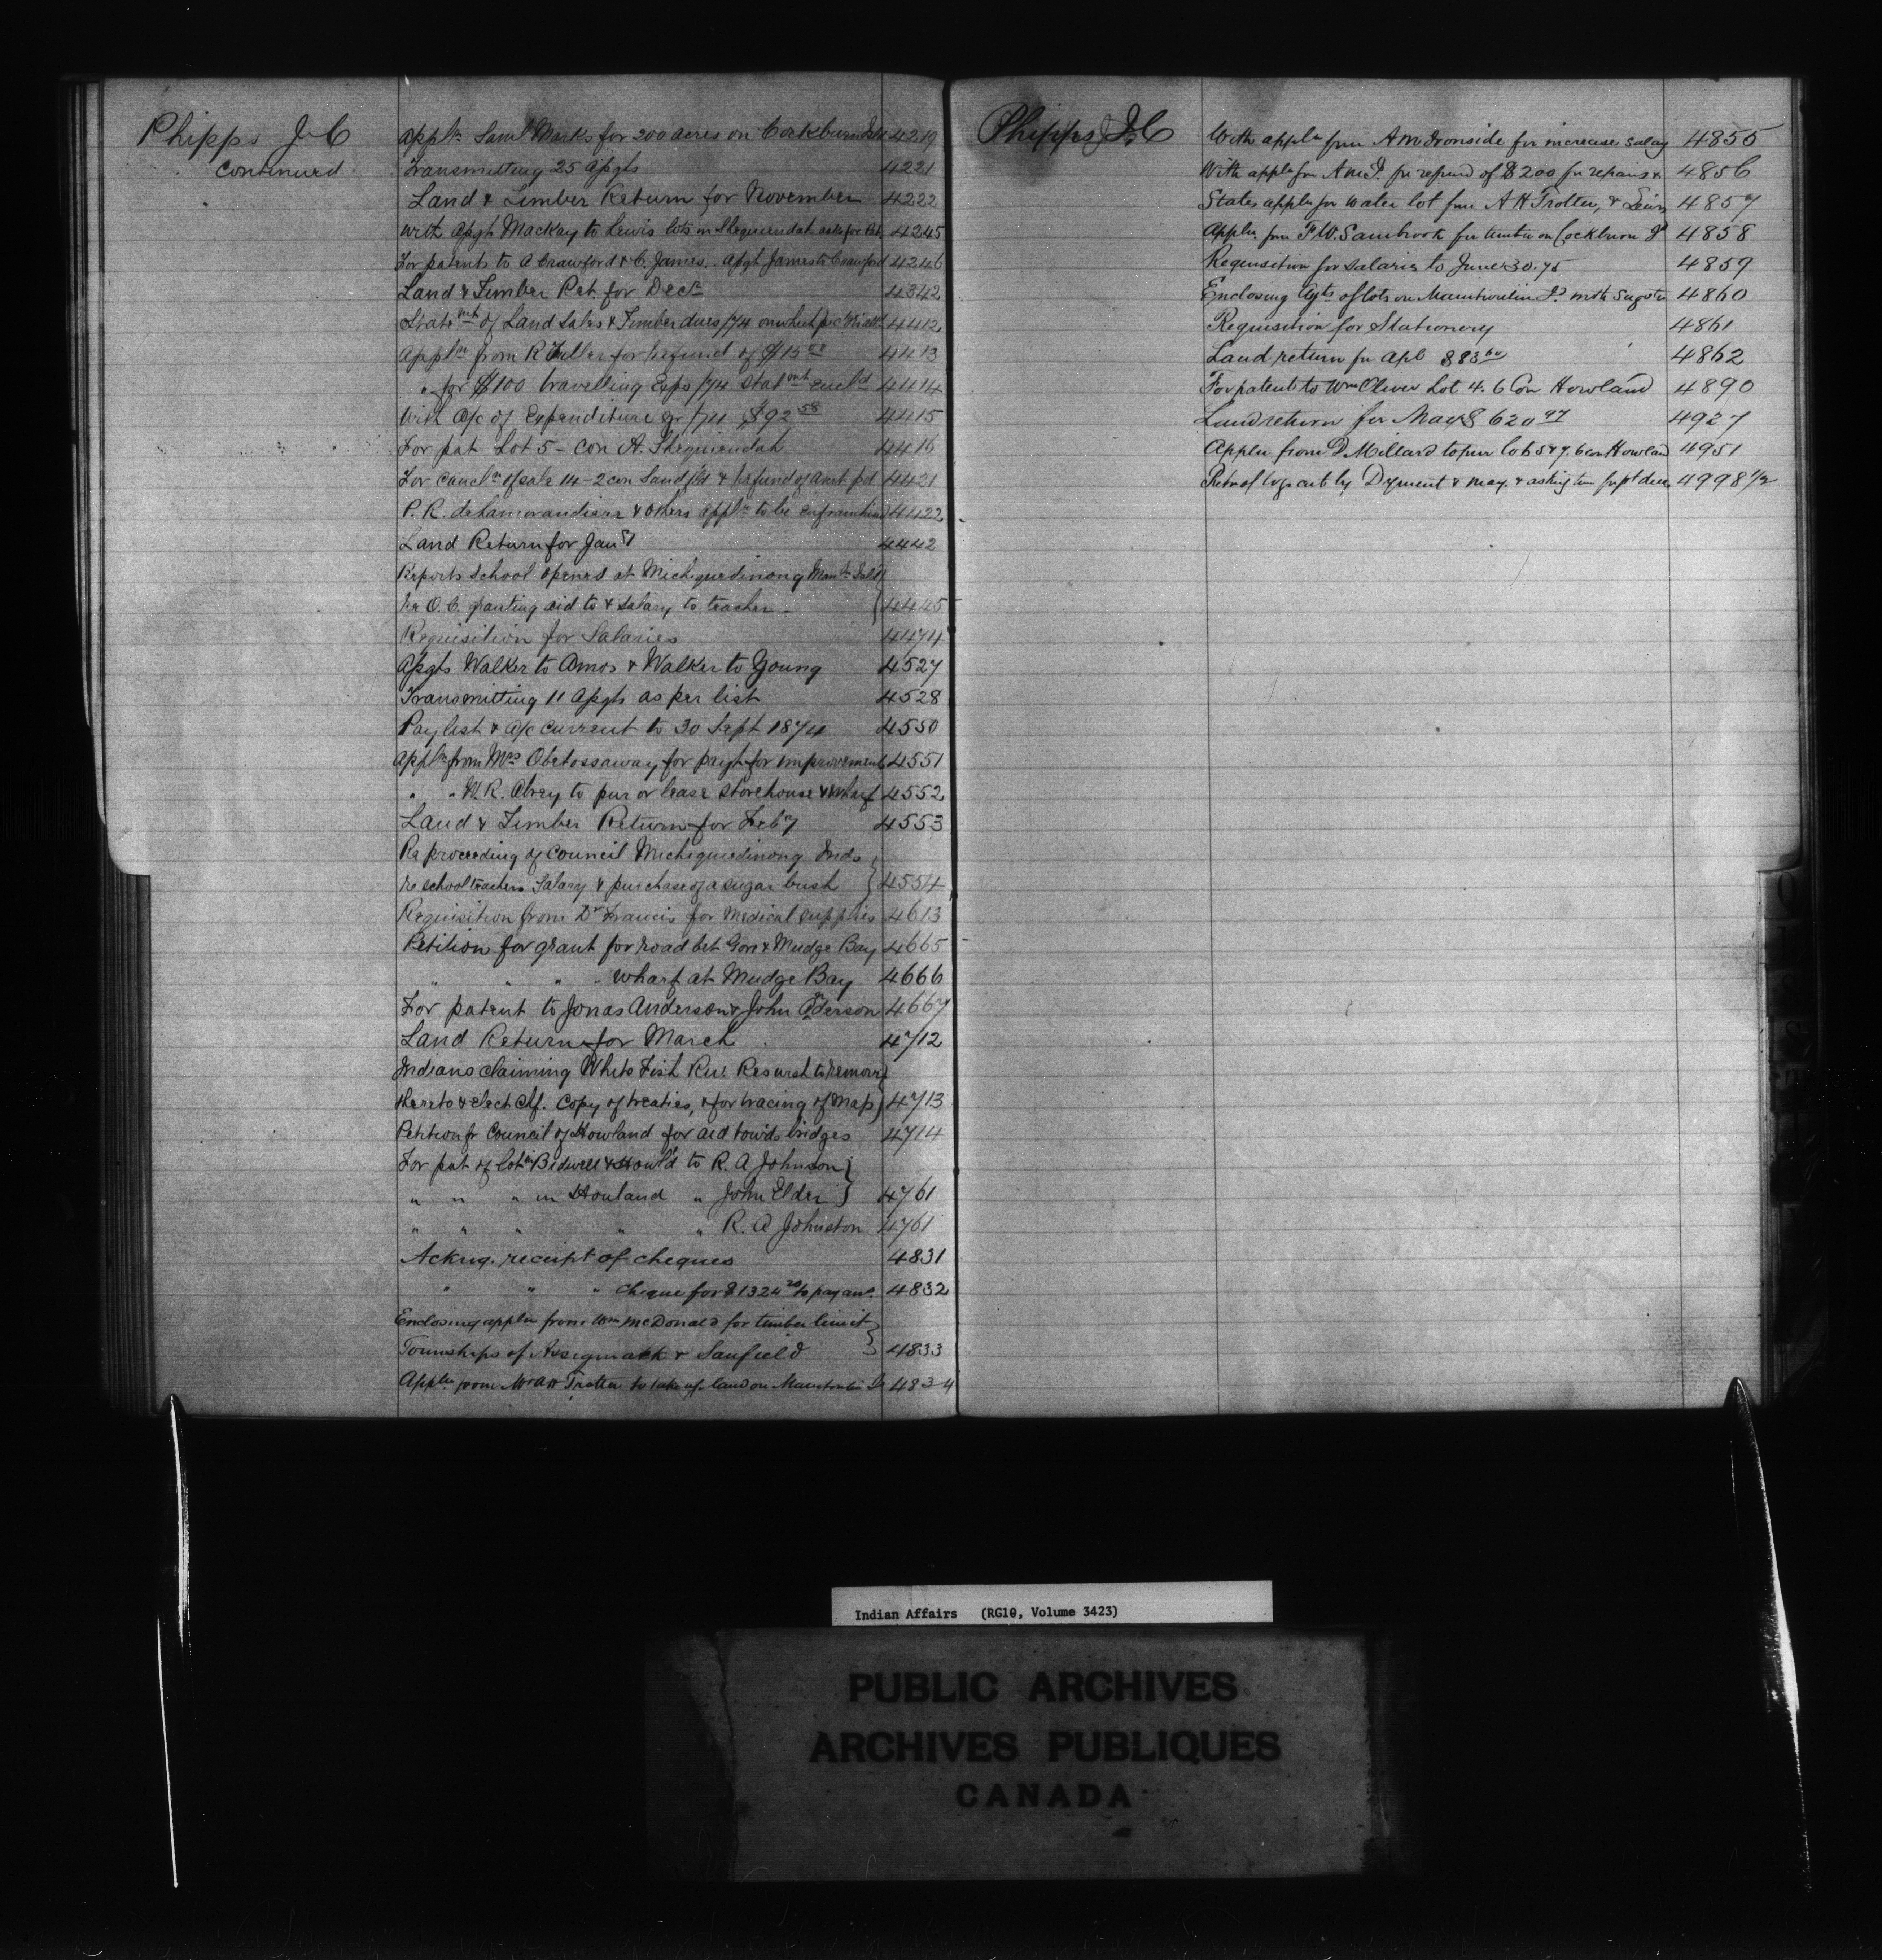 Phipps J. C
Continued
Appln Saml Marks for 200 acres on Cockburn Isld 4219
Transmitting 25 Apgts 4221
Land & Timber Return for November 4222
With Apgt Mackay to Lewis lots in Sheguiendah asks for Pat. 4245
For patents to A Crawford & C. James. Apgt James to Crawford 4246
Land & Timber Ret. for Decr 4342
Statemt of Land Sales & Timber dues /74 on which 4412
Appln from R Fuller for refund of $15 00 4413
" for $100 travelling Exps /74 statmt encld 4414
With A/c of Expenditure qr /74 $92 58 4415
For pat Lot 5 - Con A. Sheguiendah 4416
For cancln of sale 14 - 2 con Sandfld & refund of amt pd 4421
P. R. de Lamorandiere & others appln to be enfranchised 4422
Land Return for Jany 4442
Reports School opened at Michigiwedinong Manitn Isld }
re O. C. granting aid to & salary to teacher - } 4445
Requisition for Salaries 4474
Apgts Walker to Amos & Walker to Young 4527
Transmitting 11 Apgts as per list 4528
Paylist & A/c current to 30 Sept 1874 4550
Appln from Mrs Obetossaway for paymt for improvements 4551
" " W. R. Abrey to pur or lease Storehouse & Wharf 4552
Land & Timber Return for Feby 4553
Re proceeding of Council Michigiwedinong Inds }
re school teachers Salary & purchase of a sugar bush } 4554
Requisition from Dr Francis for Medical supplies 4613
Petition for grant for road bet Gore & Mudge Bay 4665
" " " - wharf at Mudge Bay 4666
For patent to Jonas Anderson & John Anderson 4667
Land Return for March 4712
Indians claiming White Fish Riv. Res wish to remove }
thereto & elect Chf. Copy of treaties, & for tracing of Map } 4713
Petition fr Council of Howland for aid towds bridges 4714
For pat of lot in Bidwell & Howld to R. A Johnson }
" " " in Howland " John Elder } 4761
" " " " " R. A Johnston 4761
Ackng. receipt of cheques 4831
" " " cheque for $1324 20 to pay ans. 4832
Enclosing appln from Wm McDonald for timber limit }
Townships of Assiginack & Sanfield } 4833
Appln from Mr A H Trotter to take up land on Manitoulin Is 4834
Phipps J. C
With appln from A M Ironside for increase salary 4855
With appln from A M I. for refund of $200 for repairs & 4856
States appln for water lot from A H Trotter, & 4857
Appln from F. W. Sambrook for timber on Cockburn Id 4858
Requisition for salaries to June 30. 75 4859
Enclosing Agts of lots on Manitoulin Id with 4860
Requisition for Stationery 4861
Land return for Apl $83 60 4862
For patent to Wm Oliver Lot 4. 6 Con Howland 4890
Land return for May $620 97 4927
Appln from D Millard to pur lots 5 & 7. 6 con Howland 4951
Retn of logs cut by Dyment & May. & asking time for pt dues 4998 1/2
Indian Affairs (RG10, Volume 3423)
PUBLIC ARCHIVES
ARCHIVES PUBLIQUES
CANADA